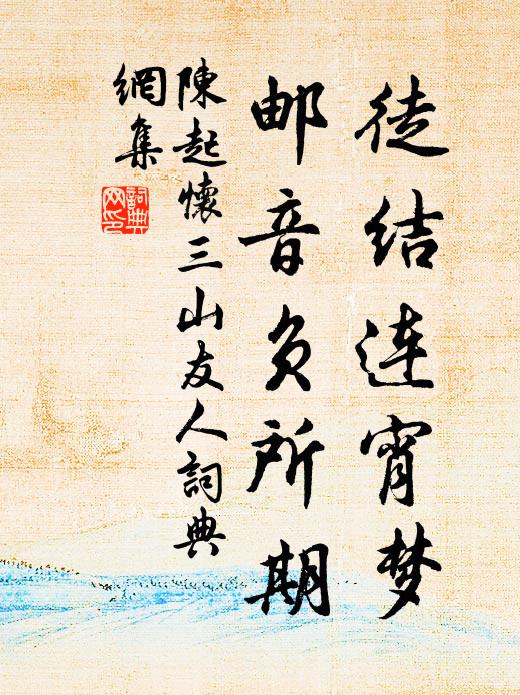 徒结连宵梦
邮音负所期
陳起懷三山友人詞典
網集
詞典
网印